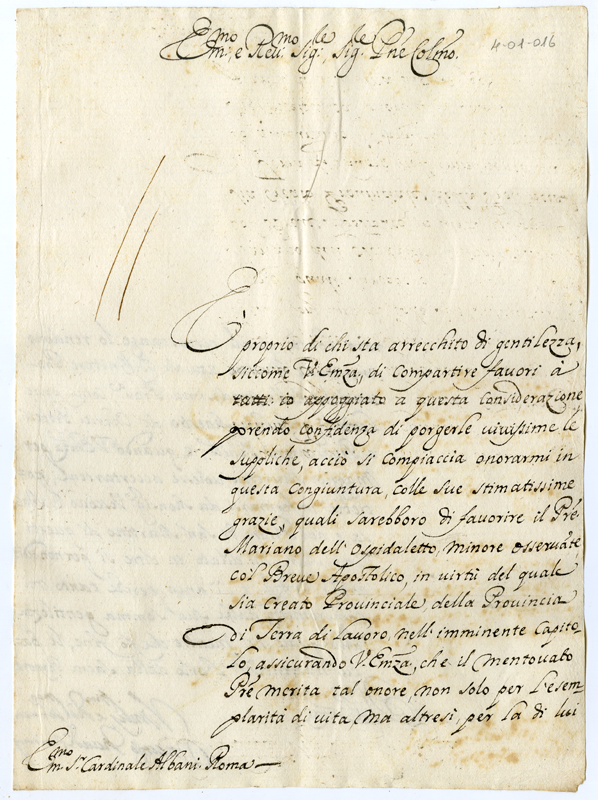 Emmo: e Revmo: Sigle: Sigle: Pne Colmo.
4-01-016
È proprio di chi sta arrecchito di gentilezza,
siccome V. Emza, di compartire favori à
tutti: io appoggiato a questa considerazione
prendo confidenza di porgerle vivissime le
suppliche, acciò si compiaccia onorarmi in
questa congiuntura, colle sue stimatissime
grazie, quali sarebboro di favorire il Pre
Mariano dell'Ospidaletto, minore osservante
col Breve Apostolico, in virtù del quale
sia creato Provinciale, della Provincia
di Terra di Lavoro, nell'imminente Capito-
lo, assicurando V. Emza, che il mentovato
Pre merita tal onore, non solo per l'esem-
plarità di vita, ma altresì, per la di lui
Emmo: Sr. Cardinale Albani Roma